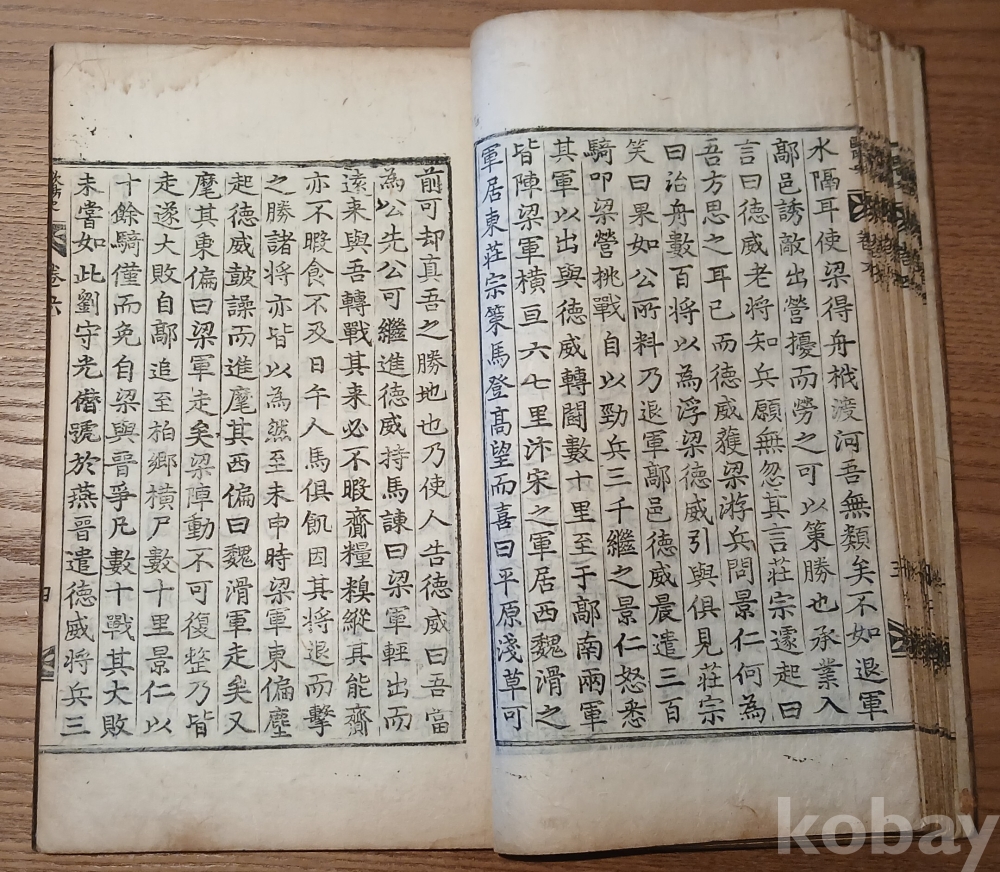 水隔耳使梁得舟栰渡河吾無類矣不如退軍
鄗邑誘敵出營擾而勞之可以策勝也承業入
言曰德威老將知兵願無忽其言莊宗遽起曰
吾方思之耳已而德威獲梁游兵問景仁何為
曰治舟數百將以為浮梁德威引與俱見莊宗
笑曰果如公所料乃退軍鄗邑德威晨遣三百
騎叩梁營挑戰自以勁兵三千繼之景仁怒悉
其軍以出與德威轉鬪數十里至于鄗南兩軍
皆陣梁軍橫亘六七里汴宋之軍居西魏滑之
軍居東莊宗策馬登高望而喜曰平原淺草可
前可却真吾之勝地也乃使人告德威曰吾當
為公先公可繼進德威持馬諫曰梁軍輕出而
遠来與吾轉戰其来必不暇齎糧糗縱其能齎
亦不暇食不及日午人馬俱飢因其將退而擊
之勝諸將亦皆以為然至未申時梁軍東偏塵
起德威皷譟而進麾其西偏曰魏滑軍走矣又
麾其東偏曰梁軍走矣梁陣動不可復整乃皆
走遂大敗自鄗追至柏鄉橫尸數十里景仁以
十餘騎僅而免自梁與晉爭凡數十戰其大敗
未嘗如此劉守光僭號於燕晉遣德威將兵三
卷六
四
kobay